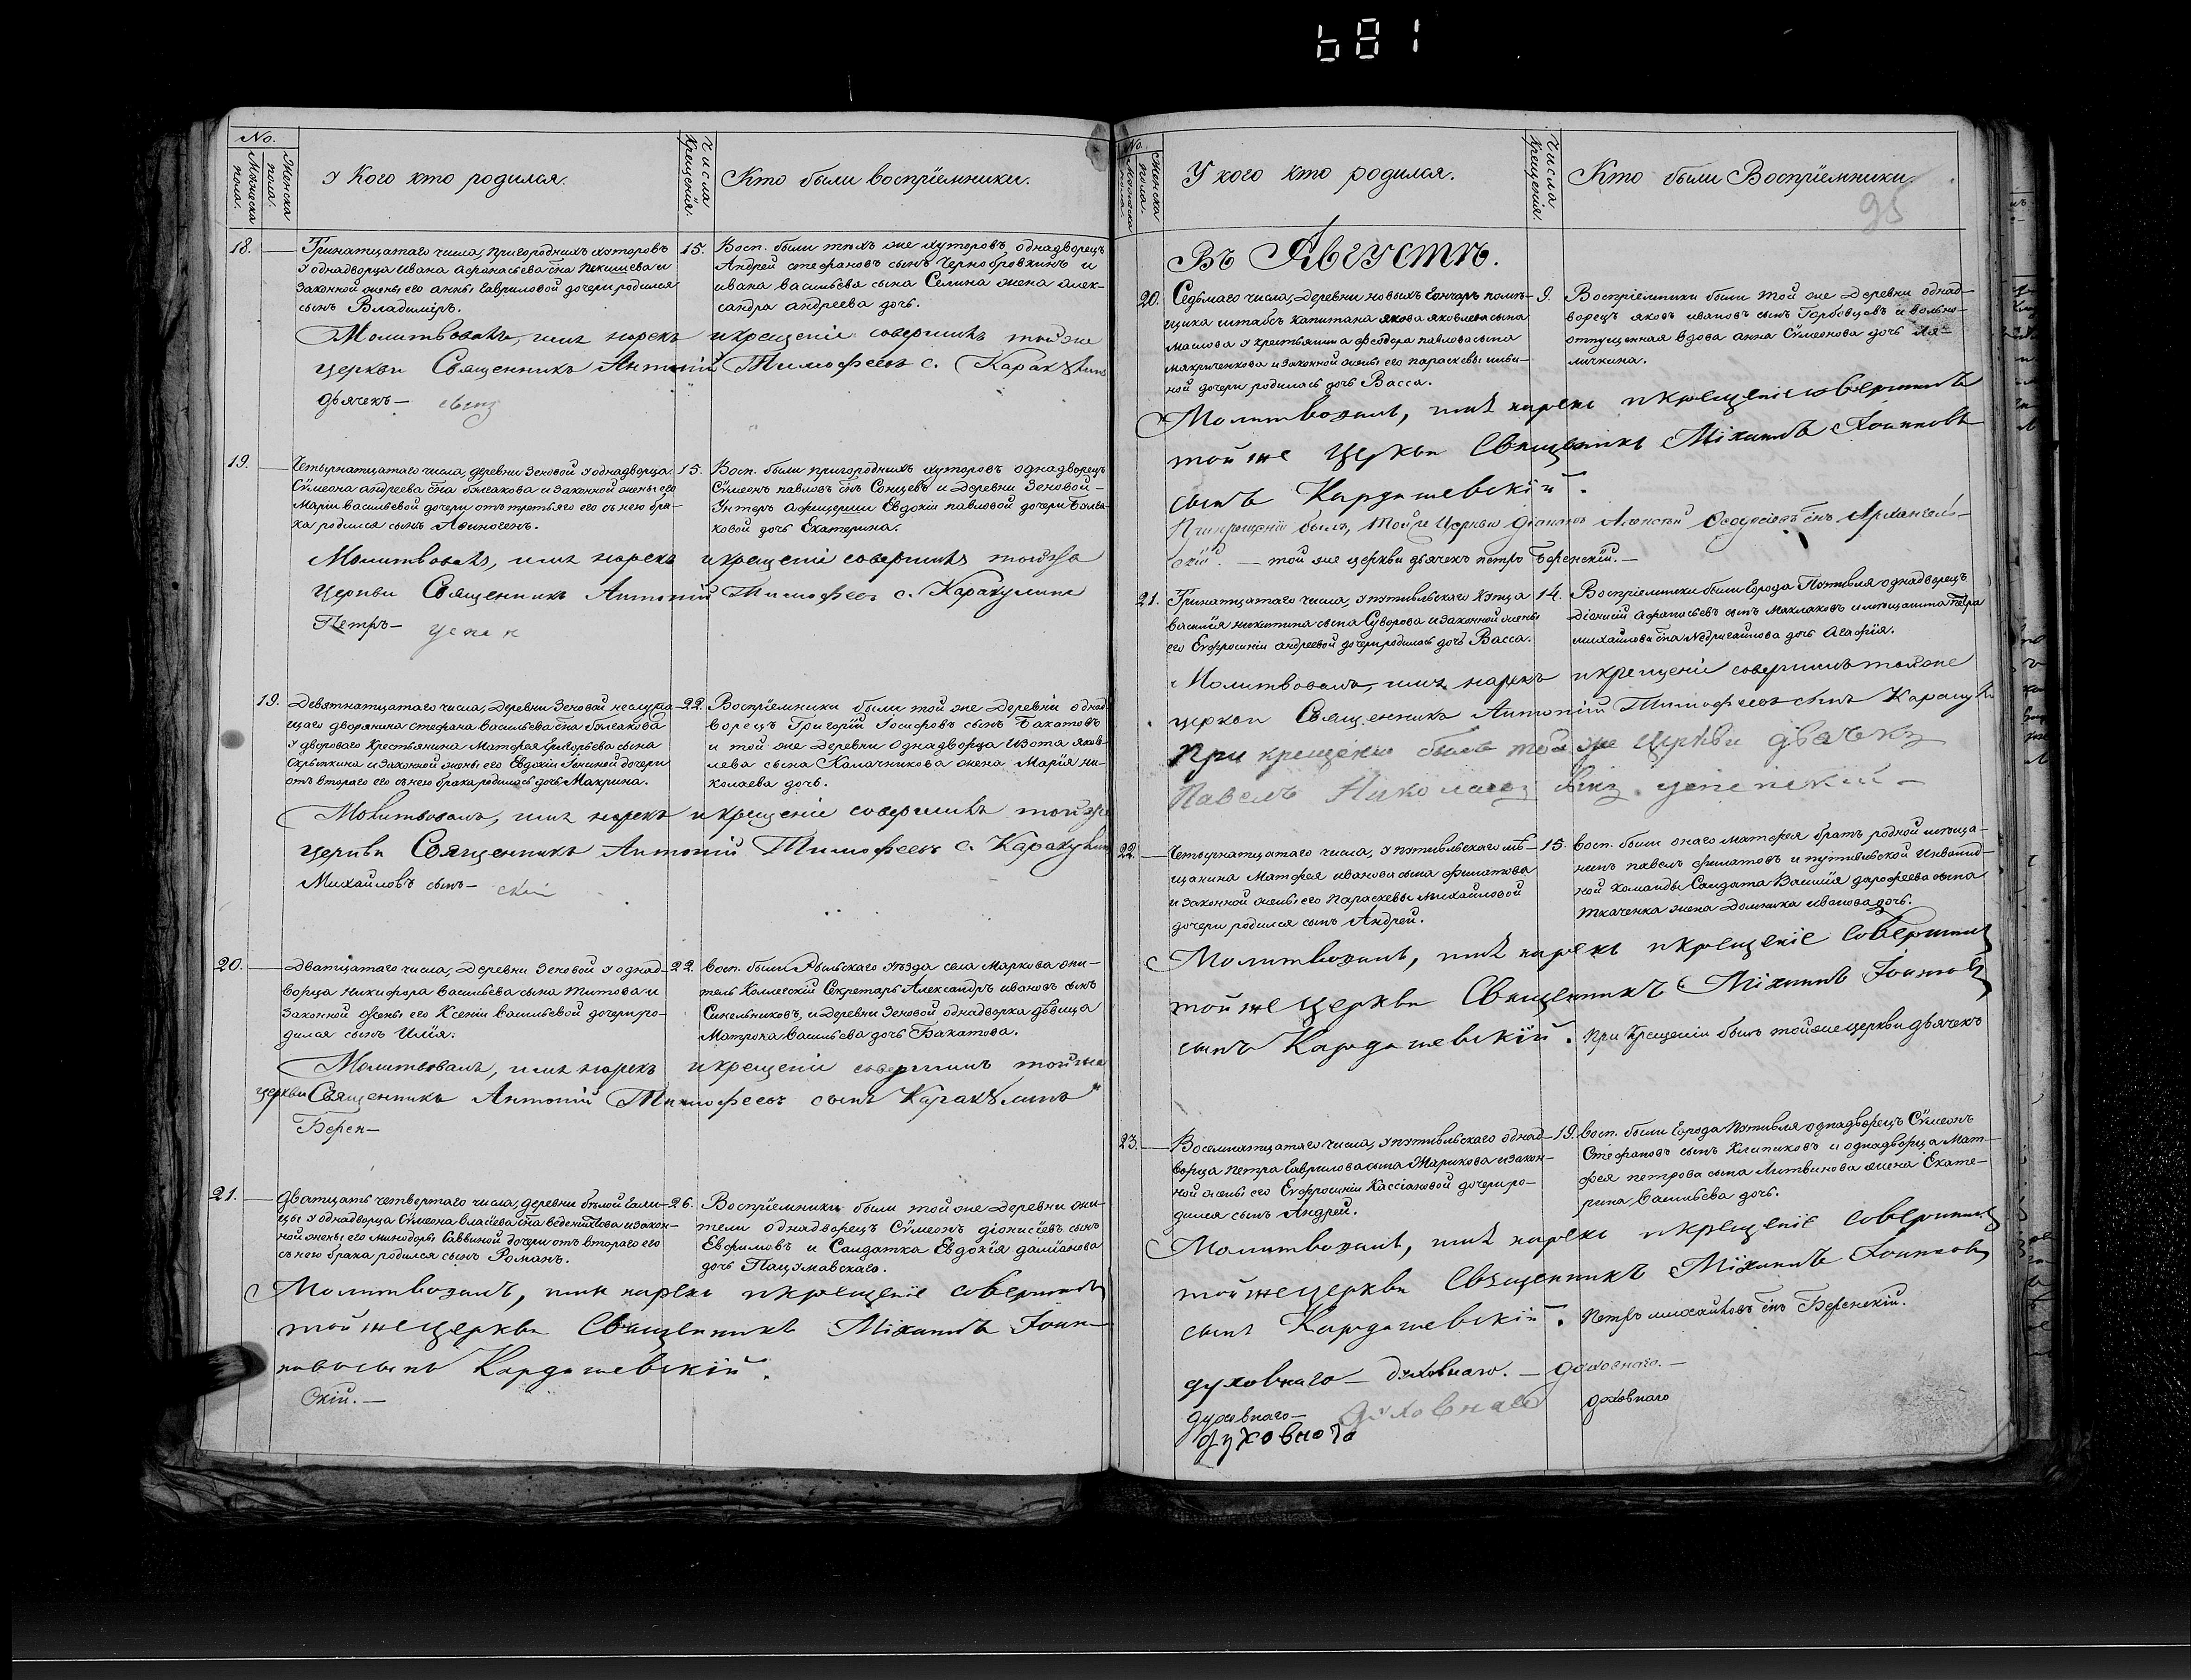 No.
Мужеска пола.
Женска пола.
У Кого кто родился.
Числа Крещенія.
Кто были восприемники.
18.
Тринатцатаго числа, пригородныхъ хуторовъ
у однадворца Ивана Афанасьева сна Пекишева и
законной жены его Анны Гавриловой дочери родился
сынъ Владимиръ.
15.
Восп. были тѣхъ же хуторовъ однадворецъ
Андрей Стефановъ сынъ Чернобровкинъ и
Ивана Васильева сына Селина жена Алек-
сандра Андреева дочь.
Молитвовалъ, имя нарекъ и крещеніе совершилъ той же
церкви Священникъ Антоній Тимофеевъ с. Каракулинъ
дьячекъ —
19.
Четырнатцатаго числа, деревни Зеновой у однадворца
Сѵмеона Андреева сна Булгакова и законной жены его
Маріи Васильевой дочери отъ третьяго его съ нею бра-
ка родился сынъ Авиногенъ.
15.
Восп. были пригородныхъ хуторовъ однадворецъ
Сѵмеонъ Павловъ снъ Сонцевъ и деревни Зеновой
Унтеръ афицерши Евдокіи Павловой дочери Булга-
ковой дочь Екатерина.
Молитвовалъ, имя нарекъ и крещеніе совершилъ той же
церкви Священникъ Антоній Тимофеевъ с. Каракулинъ
Петръ —
19.
Девятнатцатаго числа, деревни Зеновой неслужа-
щаго дворянина Стефана Васильева сна Булгакова
у двороваго крестьянина Матфея Григорьева сына
Скрыпкина и законной жены его Евдокіи дочери
отъ втораго его съ нею брака родилась дочь Макрина.
22.
Восприемники были той же деревни однад-
ворецъ Григорій Іосифовъ сынъ Бакатовъ
и той же деревни однадворца Изота Яков-
лева сына Калачникова жена Марія Ни-
колаева дочь.
Молитвовалъ, имя нарекъ и крещеніе совершилъ той же
церкви Священникъ Антоній Тимофеевъ с. Каракулинъ
Михаиловъ сынъ —
20.
Дватцатаго числа, деревни Зеновой у однад-
ворца Никифора Васильева сына Титова и
законной жены его Ксеніи Васильевой дочери ро-
дился сынъ Илія.
22.
Восп. были Рыльскаго уѣзда села Маркова жи-
тель Колежскій Секретарь Александръ Ивановъ сынъ
Синельниковъ, и деревни Зеновой однадворка дѣвица
Матрона Васильева дочь Бакатова.
Молитвовалъ, имя нарекъ и крещеніе совершилъ той же
церкви Священникъ Антоній Тимофеевъ сынъ Каракулинъ
Берен —
21.
Дватцать четвертаго числа, деревни бѣлой Гали-
цы у однадворца Сѵмеона Власіева сна и закон-
ной жены его Минодоры Саввиной дочери отъ втораго его
съ нею брака родился сынъ Романъ.
26.
Восприемники были той же деревни жи-
тели однадворецъ Сѵмеонъ Діонисіевъ сынъ
Евфимовъ и Салдатка Евдокія Даміанова
дочь
Молитвовалъ, имя нарекъ и крещеніе совершилъ
той же церкви Священникъ Михаилъ Іоан-
новъ сынъ Кардашевскій.
скій. —
No.
Мужеска пола.
Женска пола.
У кого кто родился.
Числа Крещенія.
Кто были Восприемники.
95
Въ Августѣ.
20.
Седьмаго числа, деревни новыхъ Гончаръ помѣ-
щика штабсъ капитана Якова Яковлева сына
Маслова у крестьянина Феодора Павлова сына
и законной жены его Параскевы
ной дочери родилась дочь Васса.
9.
Восприемники были той же деревни однад-
ворецъ Яковъ Ивановъ сынъ Горбовцовъ и вольно-
отпущенная вдова Анна Сѵмеонова дочь Ля-
личкина.
Молитвовалъ, имя нарекъ и крещеніе совершилъ
той же Церкви Священникъ Михаилъ Іоанновъ
сынъ Кардашевскій.
При крещеніи былъ той же Церкви Діаконъ Алексѣй Феодосіевъ снъ Архангель-
скій. — той же церкви дьячекъ Петръ Беренскій. —
21.
Тринатцатаго числа, у путивльскаго купца
Василія Никитина сына Суворова и законной жены
его Евфросиніи Андреевой дочери родилась дочь Васса.
14.
Восприемники были города Путивля однадворецъ
Діонисій Афанасьевъ сынъ Маклаковъ и мѣщанина Петра
Михайлова сна Недригайлова дочь Агафія.
Молитвовалъ, имя нарекъ и крещеніе совершилъ той же
церкви Священникъ Антоній Тимофеевъ сынъ Каракули
При крещеніи былъ той же Церкви дьячекъ
Павелъ Николаевъ сынъ Успенскій —
22.
Четырнатцатаго числа, у путивльскаго мѣ-
щанина Матфея Иванова сына Филатова
и законной жены его Параскевы Михайловой
дочери родился сынъ Андрей.
15.
Восп. были онаго Матфея братъ родной мѣща-
нинъ Павелъ Филатовъ и путивльской Инвалид-
ной команды Салдата Василія Дорофеева сына
Ткаченка жена Домника Иванова дочь.
Молитвовалъ, имя нарекъ и крещеніе совершилъ
той же Церкви Священникъ Михаилъ Іоанновъ
сынъ Кардашевскій. При Крещеніи былъ той же церкви дьячекъ
23.
Восемнатцатаго числа, у путивльскаго однад-
ворца Петра Гаврилова сына Жарикова и закон-
ной жены его Евфросиніи Кассіановой дочери ро-
дился сынъ Андрей.
19.
Восп. были города Путивля однадворецъ Сѵмеонъ
Стефановъ сынъ Клитиковъ и однадворца Мат-
фея Петрова сына Литвинова жена Екате-
рина Васильева дочь.
Молитвовалъ, имя нарекъ и крещеніе совершилъ
той же церкви Священникъ Михаилъ Іоанновъ
сынъ Кардашевскій. Петръ Михайловъ снъ Беренскій.
духовнаго — духовнаго. — духовнаго. —
духовнаго — духовнаго духовнаго
духовного